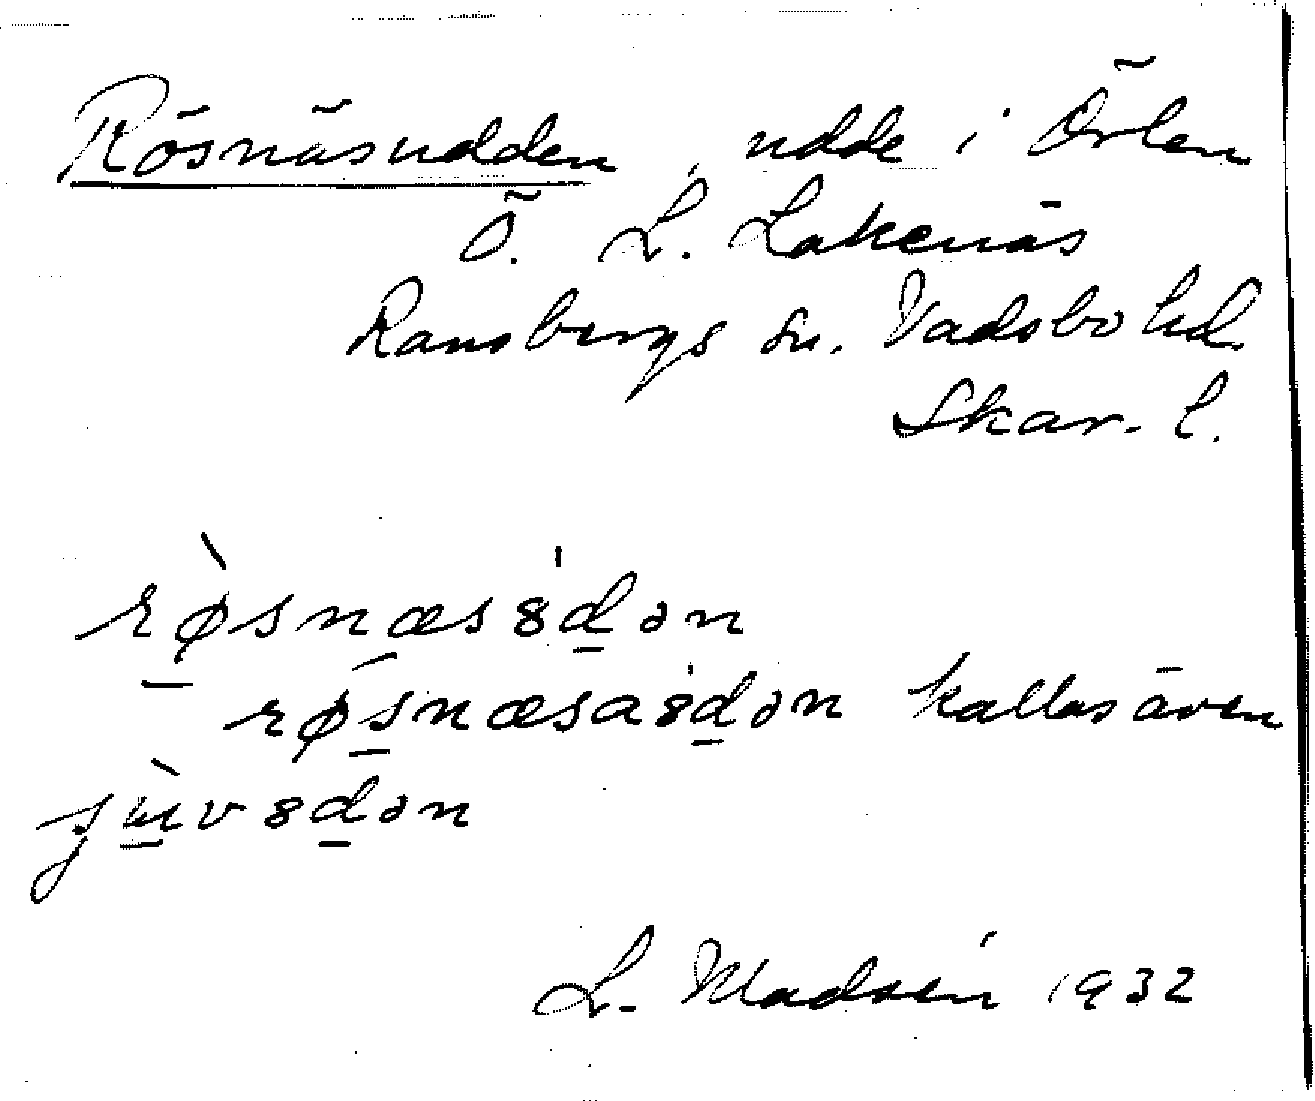 Rösnäsudden, udde i Örlen
Ö. L. Lakenäs
Ransbergs sn. Vadsbo hd.
Skar. l.
rø̀snæs8dən
røsnæsa8dən kallas även
jʉ̀v8dən
L. Madsén 1932